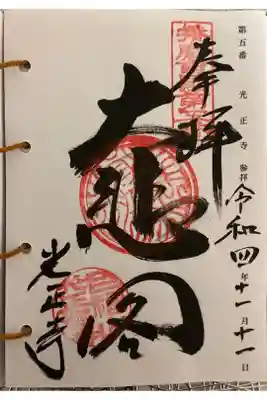 第五番 光正寺 参拝
令和四年十一月十一日
奉拝
大悲閣
光正寺